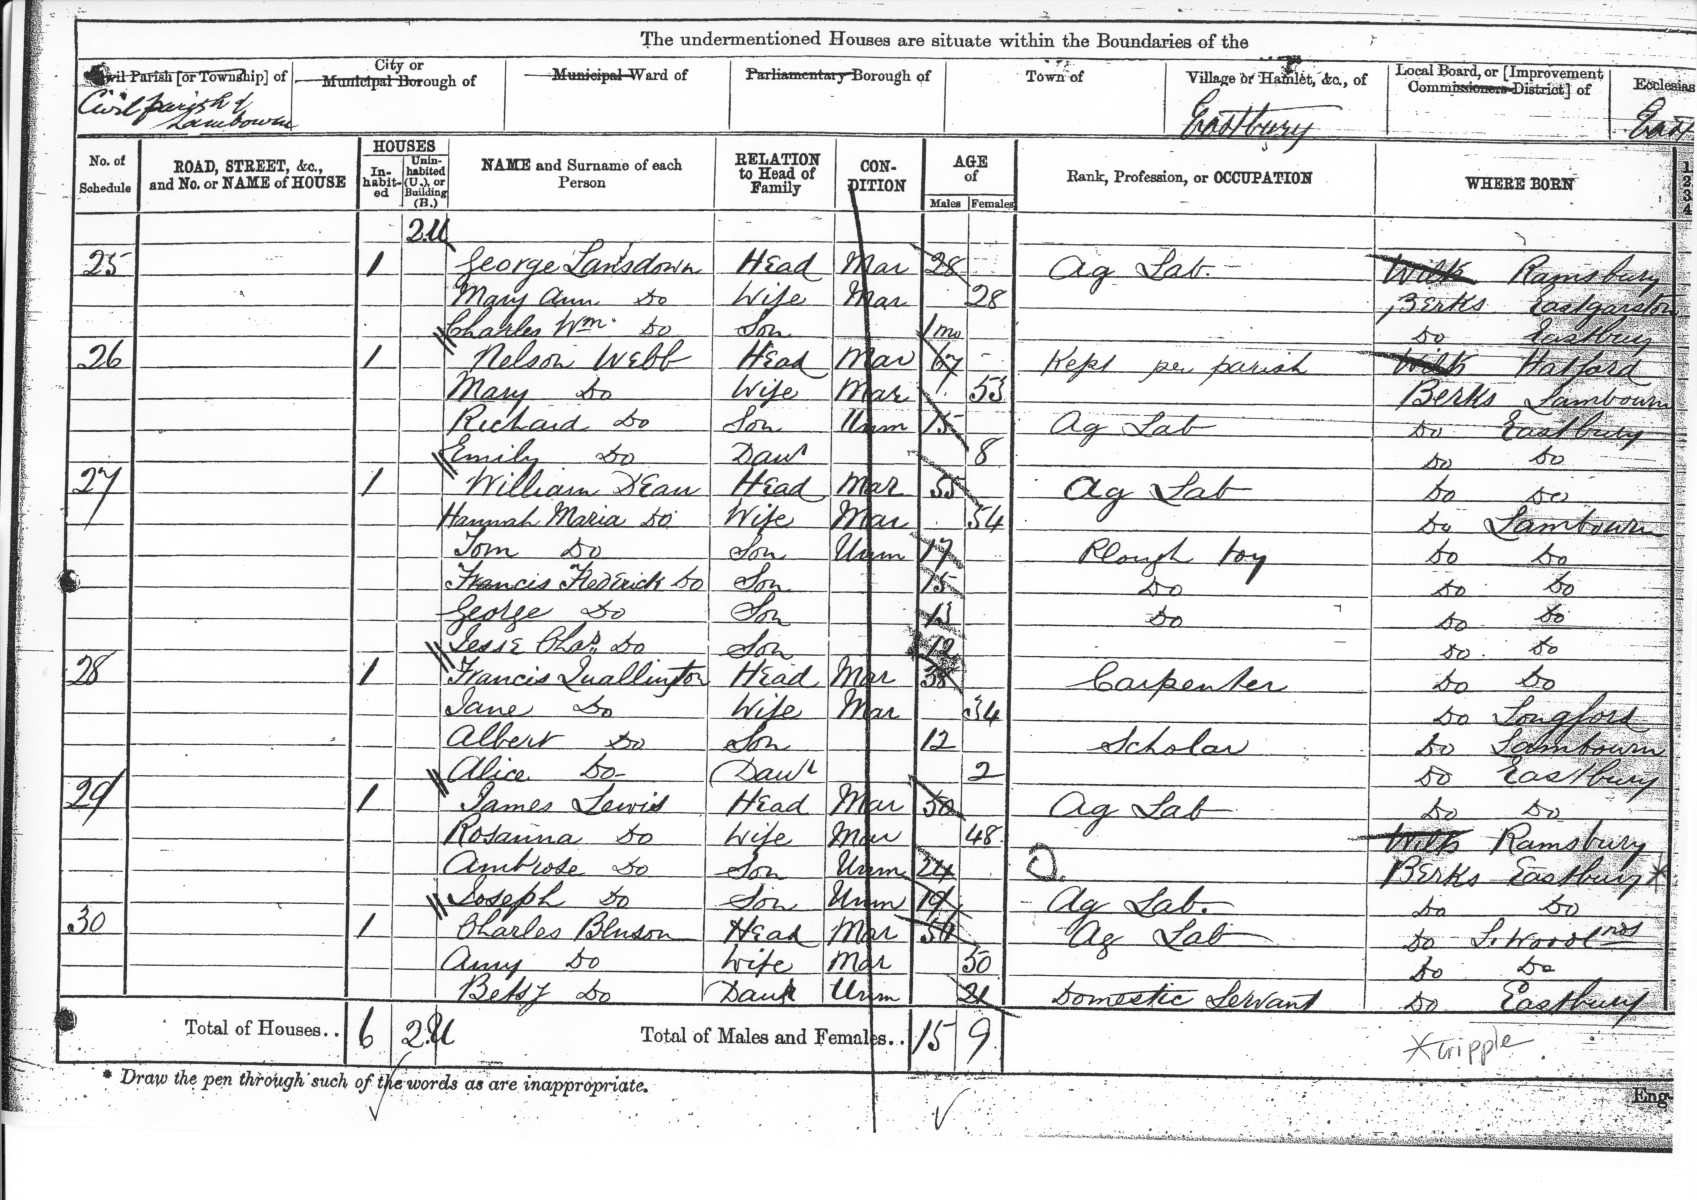 The undermentioned Houses are situate within the Boundaries of the
Civil Parish [or Township] of City or Municipal Borough of Municipal Ward of Parliamentary Borough of Town of Village or Hamlet, &c., of Local Board, or [Improvement Commissioners District] of Ecclesias
Civil parish of Lambourn Eastbury East
No. of Schedule ROAD, STREET, &c., and No. or NAME of HOUSE HOUSES In-habit-ed Unin-habited (U.), or Building (B.) NAME and Surname of each Person RELATION to Head of Family CON-DITION AGE of Males Females Rank, Profession, or OCCUPATION WHERE BORN
2U
25 1 George Lansdown Head Mar 28 Ag Lab. Wilts Ramsbury
Mary Ann Do Wife Mar 28 Berks Eastgarston
Charles Wm. Do Son 1 mo Do Eastbury
26 1 Nelson Webb Head Mar 67 Kept per parish Wilts Hatford
Mary Do Wife Mar 53 Berks Lambourn
Richard Do Son Unm 15 Ag Lab Do Eastbury
Emily Do Daur 8 Do Do
27 1 William Dean Head Mar 55 Ag Lab Do Do
Hannah Maria Do Wife Mar 54 Do Lambourn
Tom Do Son Unm 17 Plough boy Do Do
Francis Frederick Do Son 15 Do Do Do
George Do Son 13 Do Do Do
Jesse Chas. Do Son 12 Do Do
28 1 Francis Quallington Head Mar 38 Carpenter Do Do
Jane Do Wife Mar 34 Do Longford
Albert Do Son 12 Scholar Do Lambourn
Alice Do Daur 2 Do Eastbury
29 1 James Lewis Head Mar 50 Ag Lab Do Do
Rosanna Do Wife Mar 48 Wilts Ramsbury
Ambrose Do Son Unm 24 Berks Eastbury *
Joseph Do Son Unm 19 Ag Lab. Do Do
30 1 Charles Benson Head Mar 54 Ag Lab Do
Amy Do Wife Mar 50 Do Do
Betsy Do Daur Unm 21 Domestic Servant Do Eastbury
Total of Houses.. 6 2U Total of Males and Females.. 15 9
* cripple.
* Draw the pen through such of the words as are inappropriate.
Eng-